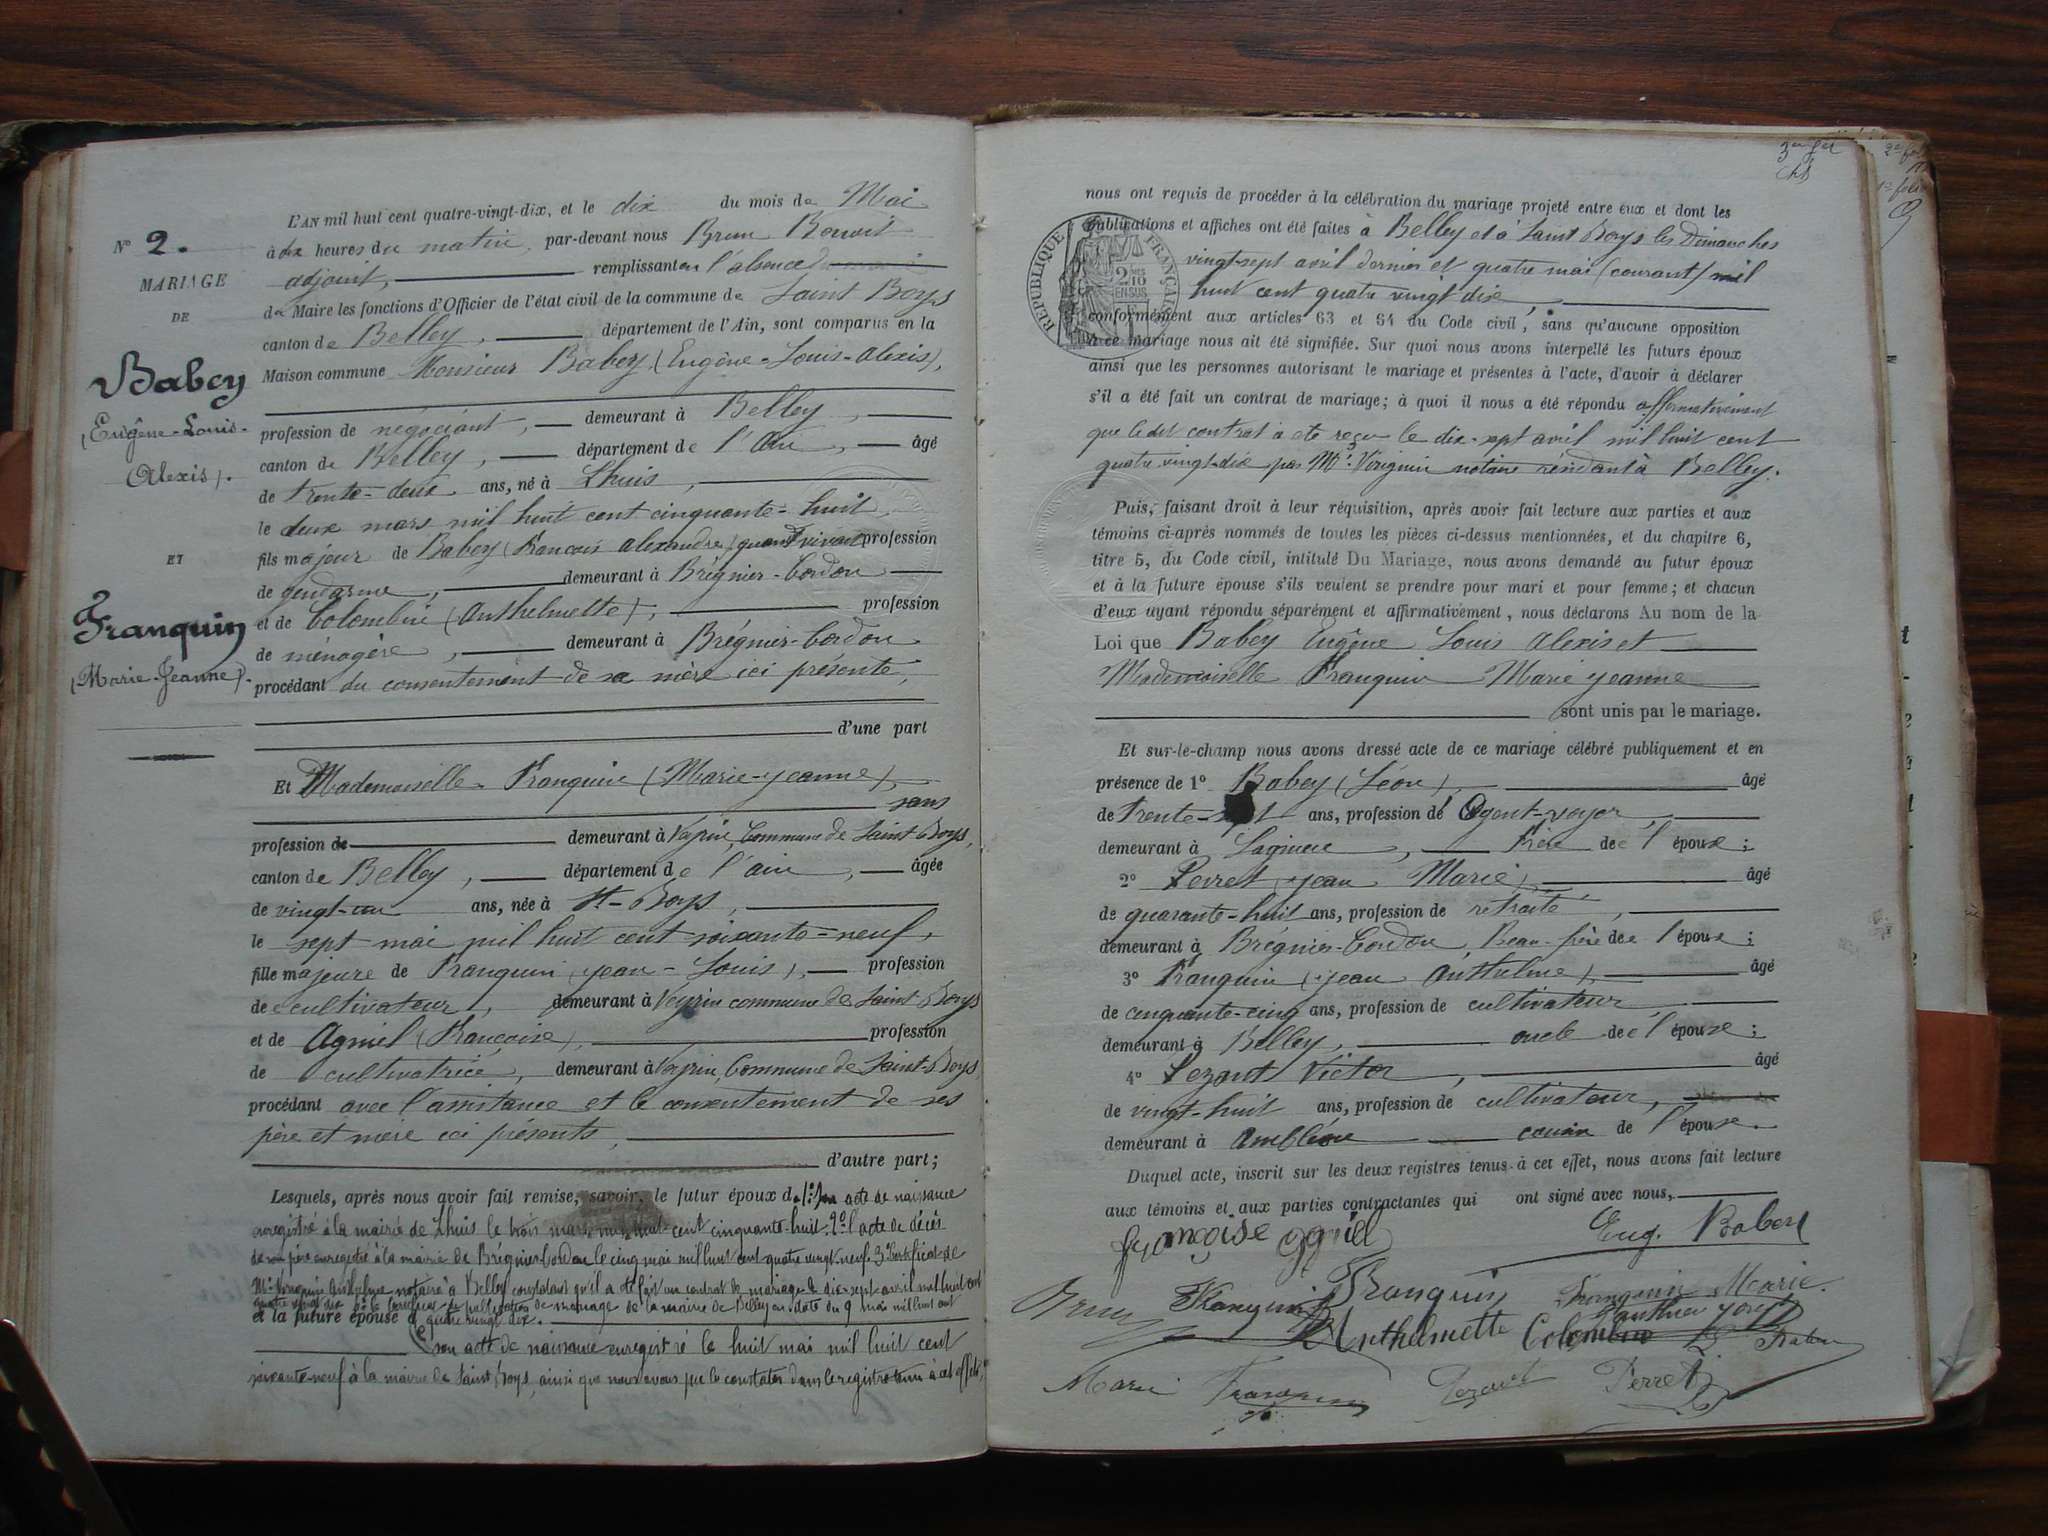 N° 2.
MARIAGE
DE
Babey
(Eugêne-Louis-
Alexis).
ET
Franquin
(Marie-Jeanne).
L'AN mil huit cent quatre-vingt-dix, et le dix du mois de Mai
à dix heures du matin, par-devant nous Brun Benoit
adjoint, remplissant en l'absence
de Maire les fonctions d'Officier de l'état civil de la commune de Saint Boys
canton de Belley, département de l'Ain, sont comparus en la
Maison commune Monsieur Babey (Eugène-Louis-Alexis),
profession de négociant, demeurant à Belley,
canton de Belley, département de l'Ain, âgé
de trente-deux ans, né à Lhuis,
le deux mars mil huit cent cinquante-huit
fils majeur de Babey (François Alexandre) quand vivant profession
de gendarme, demeurant à Brégnier-Cordon
et de Colombin (Anthelmette), profession
de ménagère, demeurant à Brégnier-Cordon
procédant du consentement de sa mère ici présente,
d'une part
Et Mademoiselle Franquin (Marie-Jeanne),
sans
profession de demeurant à Veyrin, Commune de Saint-Boys,
canton de Belley, département de l'ain, âgée
de vingt-un ans, née à St-Boys,
le sept mai mil huit cent soixante-neuf,
fille majeure de Franquin (Jean-Louis), profession
de cultivateur, demeurant à Veyrin commune de Saint-Boys
et de Agniel (Françoise), profession
de cultivatrice, demeurant à Veyrin, Commune de Saint-Boys
procédant avec l'assistance et le consentement de ses
père et mère ici présents,
d'autre part;
Lesquels, après nous avoir fait remise, savoir, le futur époux de 1° son acte de naissance
enregistré à la mairie de Lhuis le trois mars mil huit cent cinquante-huit. 2° l'acte de décès
de son père enregistré à la mairie de Brégnier-Cordon le cinq mai mil huit cent quatre vingt-neuf. 3° Certificat de
Me Anthelme notaire à Belley constatant qu'il a été fait un contrat de mariage le dix-sept avril mil huit cent
quatre vingt dix publication de mariage de la mairie de Belley en date du 9 mai mil huit cent
et la future épouse d quatre vingt dix.
son acte de naissance enregistré le huit mai mil huit cent
soixante-neuf à la mairie de Saint Boys, ainsi que nous avons pu le constater dans le registre tenu à cet effet,
3me fet
2e fol
1e folio
nous ont requis de procéder à la célébration du mariage projeté entre eux et dont les
publications et affiches ont été faites à Belley et à Saint Boys les Dimanches
vingt-sept avril dernier et quatre mai (courant) mil
huit cent quatre vingt dix,
RÉPUBLIQUE FRANÇAISE
2 10
EN SUS
conformément aux articles 63 et 64 du Code civil, sans qu'aucune opposition
à ce mariage nous ait été signifiée. Sur quoi nous avons interpellé les futurs époux
ainsi que les personnes autorisant le mariage et présentes à l'acte, d'avoir à déclarer
s'il a été fait un contrat de mariage; à quoi il nous a été répondu affirmativement
que le dit contrat a été reçu le dix-sept avril mil huit cent
quatre vingt-dix par Me notaire résidant à Belley.
Puis, faisant droit à leur réquisition, après avoir fait lecture aux parties et aux
témoins ci-après nommés de toutes les pièces ci-dessus mentionnées, et du chapitre 6,
titre 5, du Code civil, intitulé Du Mariage, nous avons demandé au futur époux
et à la future épouse s'ils veulent se prendre pour mari et pour femme; et chacun
d'eux ayant répondu séparément et affirmativement, nous déclarons Au nom de la
Loi que Babey Eugêne Louis Alexis et
Mademoiselle Franquin Marie Jeanne
sont unis par le mariage.
Et sur-le-champ nous avons dressé acte de ce mariage célébré publiquement et en
présence de 1° Babey (Léon), âgé
de trente-sept ans, profession de Agent-voyer,
demeurant à Lagnieu, Frère de l'époux;
2° Perret (Jean Marie), âgé
de quarante-huit ans, profession de retraité,
demeurant à Brégnier-Cordon, Beau-père de l'époux;
3° Franquin (Jean Anthelme), âgé
de cinquante-cinq ans, profession de cultivateur,
demeurant à Belley, oncle de l'épouse;
4° Pezant Victor, âgé
de vingt-huit ans, profession de cultivateur,
demeurant à Ambléon cousin de l'épouse.
Duquel acte, inscrit sur les deux registres tenus à cet effet, nous avons fait lecture
aux témoins et aux parties contractantes qui ont signé avec nous,
françoise agniel Eug. Babey
Brun Franquin Franquin Franquin Marie
Anthelmette Colombin
Marie Franquin Pezant Perret